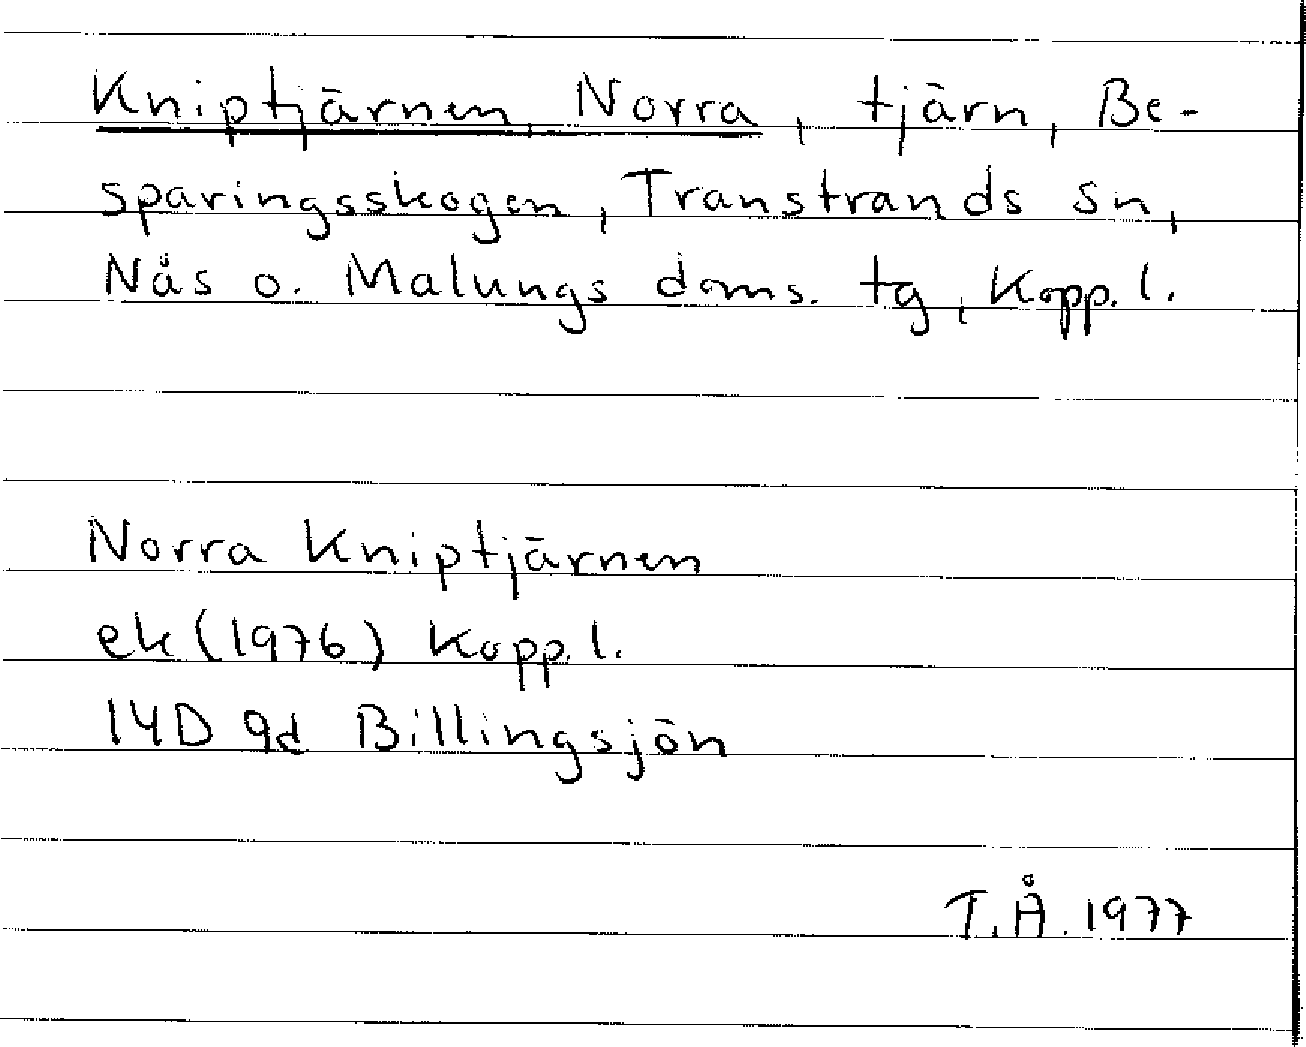 Kniptjärnen, Norra, tjärn, Be-
sparingsskogen, Transtrands sn,
Nås o. Malungs doms. tg, Kopp. l.
Norra Kniptjärnen
ek (1976) Kopp. l.
14D 9d Billingsjön
T.Å. 1977